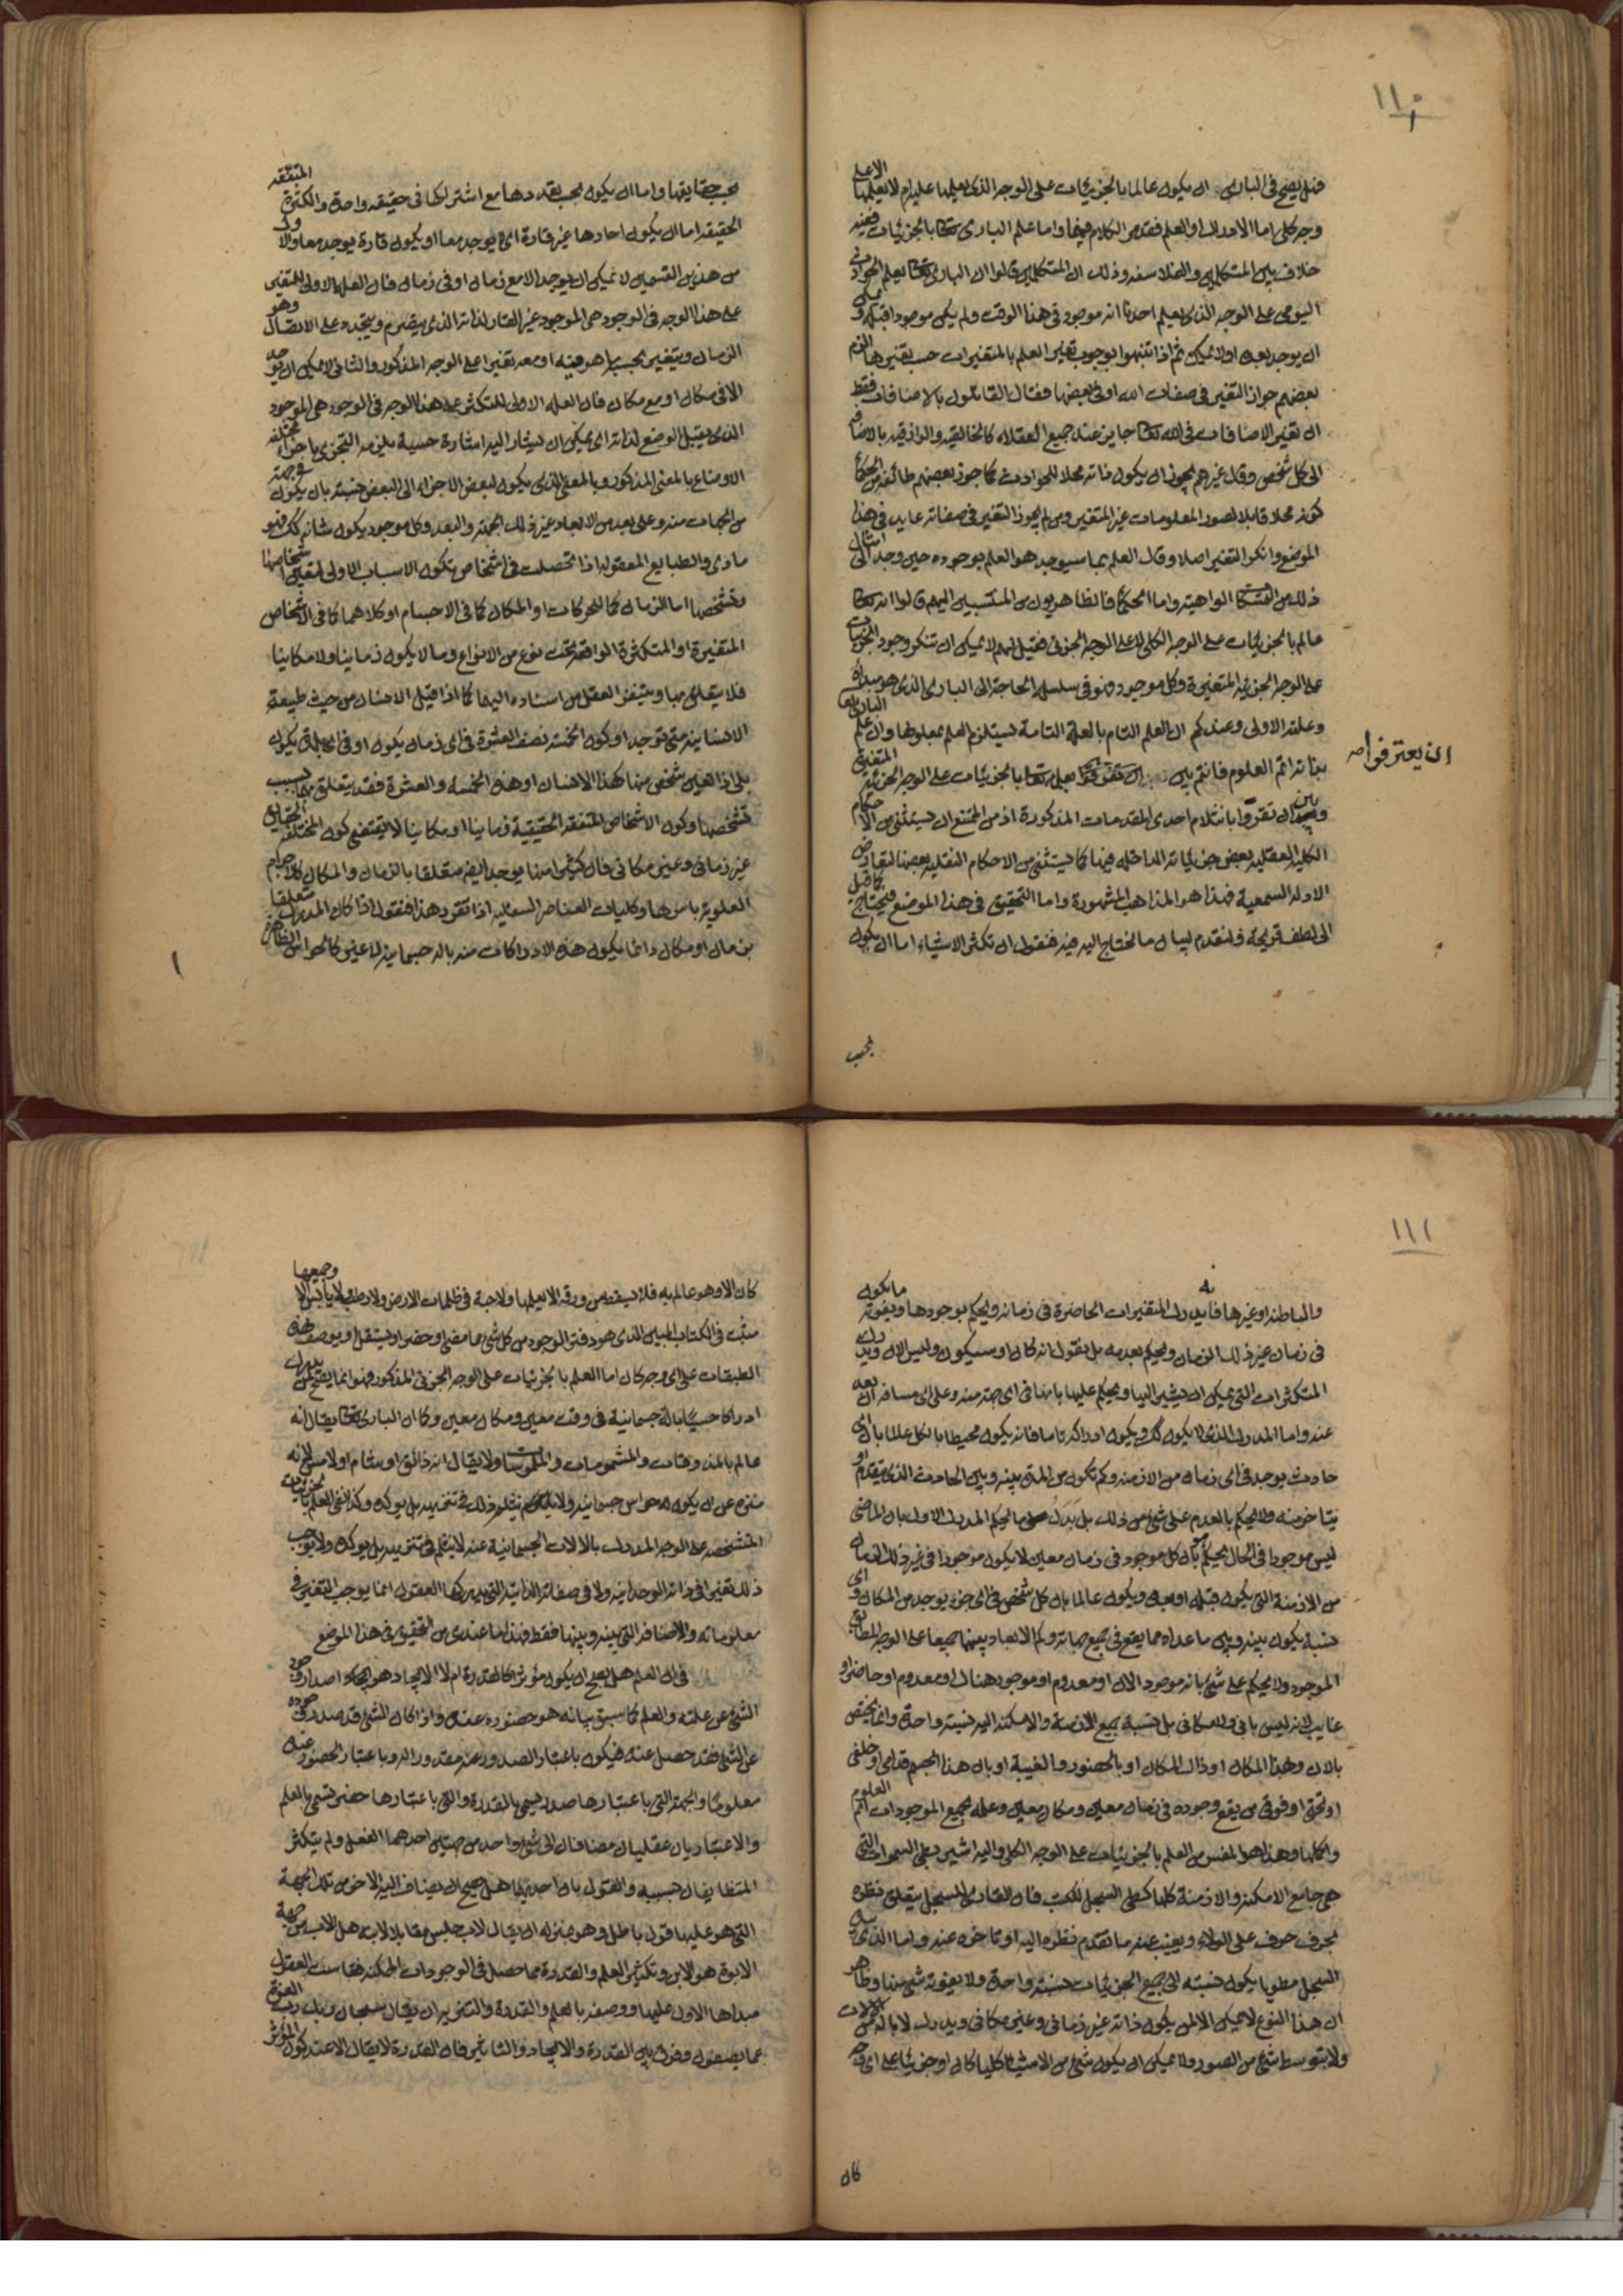 ١١٠
فهل يصح فى البارى ان يكون عالما بالجزئيات على الوجه الذى يعلمها عليه ام لا يعلمها الا على
وجه كلى اما الادراك او العلم فقد مر الكلام فيهما واما علم البارى تعالى بالجزئيات ففيه
خلاف بين المتكلمين والفلاسفه وذلك ان المتكلمين قالوا ان البارى تعالى يعلم الحوادث
اليومى على الوجه الذى يعلم احدنا انه موجود فى هذا الوقت ولم يكن موجودا قبله و يمكن
ان يوجد بعده او لا يمكن ثم اذا تنبهوا بوجوب تغير العلم بالمتغيرات حسب تغيرها التزم
بعضهم جواز التغير فى صفات الله او فى بعضها فقال القائلون بالاضافات فقط
ان تغير الاضافات فى الله تعالى جايز عند جميع العقلاء كالخالقيه والرازقيه بالاضافه
الى كل شخص وقال غيرهم يجوز ان يكون ذاته محلا للحوادث كما جوز بعضهم طائفه من الحكماء
كونه محلا قابلا لصور المعلومات غير المتغير ومن لم يجوز التغير فى صفاته عايد فى هذا
الموضع وانكر التغير اصلا وقال العلم بما سيوجد هو العلم بوجوده حين وجد الى امثال
ذلك من التمسكات الواهية واما الحكماء فالظاهريون من المنتسبين اليهم قالوا انه تعالى
عالم بالجزئيات على الوجه الكلى لا على الوجه الجزئى فقيل لهم لا يمكن ان تنكر وجود الجزئيات
على الوجه الجزئيه المتغيرة وكل موجود فهو فى سلسلة الحاجة الى البارى الذى هو مبداه
وعلته الاولى وعندكم ان العلم التام بالعلة التامة يستلزم العلم بمعلولها وان علم البارى تعالى
بذاته اتم العلوم فانتم بين ان تعترفوا بعلمه تعالى بالجزئيات على الوجه الجزئية المتغيره
ان يعترفوا صه
وبين ان تقروا بانثلام احدى المقدمات المذكورة اذ من الممتنع ان يستثنى من الاحكام
الكلية العقليه بعض جزئياته الداخله فيها كما يستثنى من الاحكام النقليه بعضها لتعارض
الادله السمعية فهذا هو المذاهب المشهورة واما التحقيق فى هذا الموضع فيحتاج كما قيل
الى لطف قريحة ولنقدم لبيان ما نحتاج اليه فيه فنقول ان تكثر الاشياء اما ان يكون
بحسب
بحسب حقايقها واما ان يكون بحسب تعددها مع اشتراكها فى حقيقه واحدة والكثرة المتفقه
الحقيقه اما ان يكون احادها غير قارة اى لا يوجد معا او يكون قارة يوجد معا والاول
من هذين القسمين لا يمكن ان يوجد الا مع زمان او فى زمان فان العله الاولى للمتغير
على هذا الوجه فى الوجود هى الموجود غير القار لذاته الذى يتصرم ويتجدد على الاتصال وهو
الزمان ويتغير بحسبه ما هو فيه او معه تغيرا على الوجه المذكور والثانى لا يمكن ان يوجد
الا فى مكان او مع مكان فان العله الاولى للمتكثر على هذا الوجه فى الوجود هى الموجود
الذى يقبل الوضع لذاته اى يمكن ان يشار اليه اشارة حسية يلزمه التجزى باجزاء مختلفه
الاوضاع بالمعنى المذكور وبالمعنى الذى يكون لبعض الاجزاء الى البعض نسبة بان يكون فى جهة
من الجهات منه وعلى بعد من الابعاد غير ذلك الجهة والبعد وكل موجود يكون شانه كك فهو
مادى والطبايع المعقولة اذا تحصلت فى اشخاص تكون الاسباب الاولى لتعين اشخاصها
وتشخصها اما الزمان كما للحركات او المكان كما فى الاجسام او كلاهما كما فى الاشخاص
المتغيرة او المتكثرة الواقعة تحت نوع من الانواع وما لا يكون زمانيا ولا مكانيا
فلا يتعلق بهما ويتنفر العقل من اسناده اليهما كما اذا قيل الانسان من حيث طبيعة
الانسانيه متى توجد او كون الخمسة نصف العشرة فى اى زمان يكون او فى اى بلدة يكون
بل اذا تعين شخص منها كهذا الانسان او هذه الخمسه والعشرة فقد يتعلق بهما بسبب
تشخصهما وكون الاشخاص المتفقه الحقيقية زمانيا او مكانيا لا يقتضى كون المختلفه الحقايق
غير زمانى وغير مكانى فان كثيرا منها يوجد ايضا متعلقا بالزمان والمكان كالاجرام
العلوية باسرها وكليات العناصر السفليه اذا تقرر هذا فنقول اذا كان المدرك متعلقا
بزمان او مكان فانما يكون هذه الادراكات منه بالة جسمانيه لا غير كالحواس الظاهرة
١١١
والباطنة او غيرها فانه يدرك المتغيرات الحاضرة فى زمانه ويحكم بوجودها ويفوته ما يكون
فى زمان غير ذلك الزمان ويحكم بعدمه بل يقول انه كان او سيكون وليس الان ويدرك
المتكثرات التى يمكن ان يشير اليها ويحكم عليها بانها فى اى جهة منه وعلى اى مسافه ان بعد
عنه واما المدرك الذى لا يكون كك ويكون ادراكه تاما فانه يكون محيطا بالكل عالما بان اى
حادث يوجد فى اى زمان من الازمنه وكم تكون من المدة بينه وبين الحادث الذى يتقدم او
يتاخر عنه ولا يحكم بالعدم على شئ من ذلك بل بدل ما يحكم المدرك الاول بان الماضى
ليس موجودا فى الحال يحكم بان كل موجود فى زمان معين لا يكون موجودا فى غير ذلك الزمان
من الازمنة التى يكون قبله او بعده ويكون عالما بان كل شخص فى اى جزء يوجد من المكان و اى
نسبة يكون بينه وبين ما عداه مما يقع فى جميع جهاته وكم الابعاد بينهما جميعا على الوجه المطابق
الموجود ولا يحكم على شئ بانه موجود الان او معدوم او موجود هناك او معدوم او حاضر او
غايب لانه ليس بزمانى ولا مكانى بل نسبة جميع الازمنة والامكنة اليه نسبة واحدة وانما يختص
بالان وبهذا المكان او ذاك المكان او بالحضور والغيبة او بان هذا الجسم قدامى او خلفى
او تحتى او فوقى من يقع وجوده فى زمان معين ومكان معين وعلمه بجميع الموجودات اتم العلوم
واكملها وهذا هو المفسر من العلم بالجزئيات على الوجه الكلى واليه اشير بطى السموات التى
هى جامع الامكنه والازمنة كلها كطى السجل للكتب فان القارئ للسجل يتعلق نظره
بحرف حرف على الولاء ويغيب عنه ما تقدم نظره اليه او تاخر عنه واما الذى بيده
السجل مطويا يكون نسبته الى جميع الجزئيات نسبة واحدة ولا يفوته شئ منها وظاهر
ان هذا النوع لا يمكن الا لمن يكون ذاته غير زمانى وغير مكانى ويدرك لا بالة من الالات
ولا بتوسط شئ من الصور ولا يمكن ان يكون شئ من الاشياء كليا كان او جزئيا على اى وجه
كان
كان الا وهو عالم به فلا يسقط من ورقه الا يعلمها ولا حبة فى ظلمات الارض ولا رطب ولا يابس الا وجميعها
مثبت فى الكتاب المبين الذى هو دفتر الوجود من كل شئ مما مضى او حضر او يستقبل او يوصف بهذه
الطبقات على اى وجه كان اما العلم بالجزئيات على الوجه الجزئى المذكور فهو انما يصح لمن يدرك
ادراكا حسيا بالة جسمانية فى وقت معين ومكان معين وكما ان البارى تعالى يقال انه
عالم بالمذوقات والمشمومات والملموسات ولا يقال انه ذائق او شام او لامس لانه
منزه عن ان يكون له حواس جسمانية ولا يثلم ذلك فى تنزيهه بل يوكده وكذا نفى العلم بالجزئيات
المتشخصة على الوجه المدرك بالالات الجسمانية عنه لا يثلم فى تنزيهه بل يوكده ولا يوجب
ذلك تغيرا فى ذاته الوحدانيه ولا فى صفاته الذاتية التى يدركها العقول انما يوجب التغير فى
معلوماته والاضافة التى بينه وبينها فقط فهذا ما عندى من التحقيق فى هذا الموضع
فى ان العلم هل يصح ان يكون مؤثرا كالقدرة ام لا الايجاد هو احداث اصدار وجود
الشئ عن علته والعلم كما سبق بيانه هو حضوره عنده واذا كان الشئ قد صدر وجوده
عن الشئ فقد حصل عنده فيكون باعتبار الصدور عنه مقدورا له وباعتبار الحضور عنده
معلوما والجهة التى باعتبارها صدر يسمى بالقدرة والتى باعتبارها حضر يسمى بالعلم
والاعتباريان عقليان مضافان الى شئ واحد من جهتين احدهما الفعل ولم يتكثر
المتضايفان بسببه والقول بان احديهما هل يصح ان يضاف اليه الاخر من تلك الجهة
التى هو عليها قول باطل وهو بمنزله ان يقال لاب جلس مقابلا لابنه هل الاب من جهة
الابوة هو الابن وتكثر العلم والقدرة مما حصل فى الوجودات الممكنه فقاست العقول
مبداها الاول عليها ووصفه بالعلم والقدرة والتنزيه ان يقال سبحان ربك رب العزة
عما يصفون وفرق بين القدرة والايجاد والتاثير فان القدرة لا يقال الا عند كون المؤثر